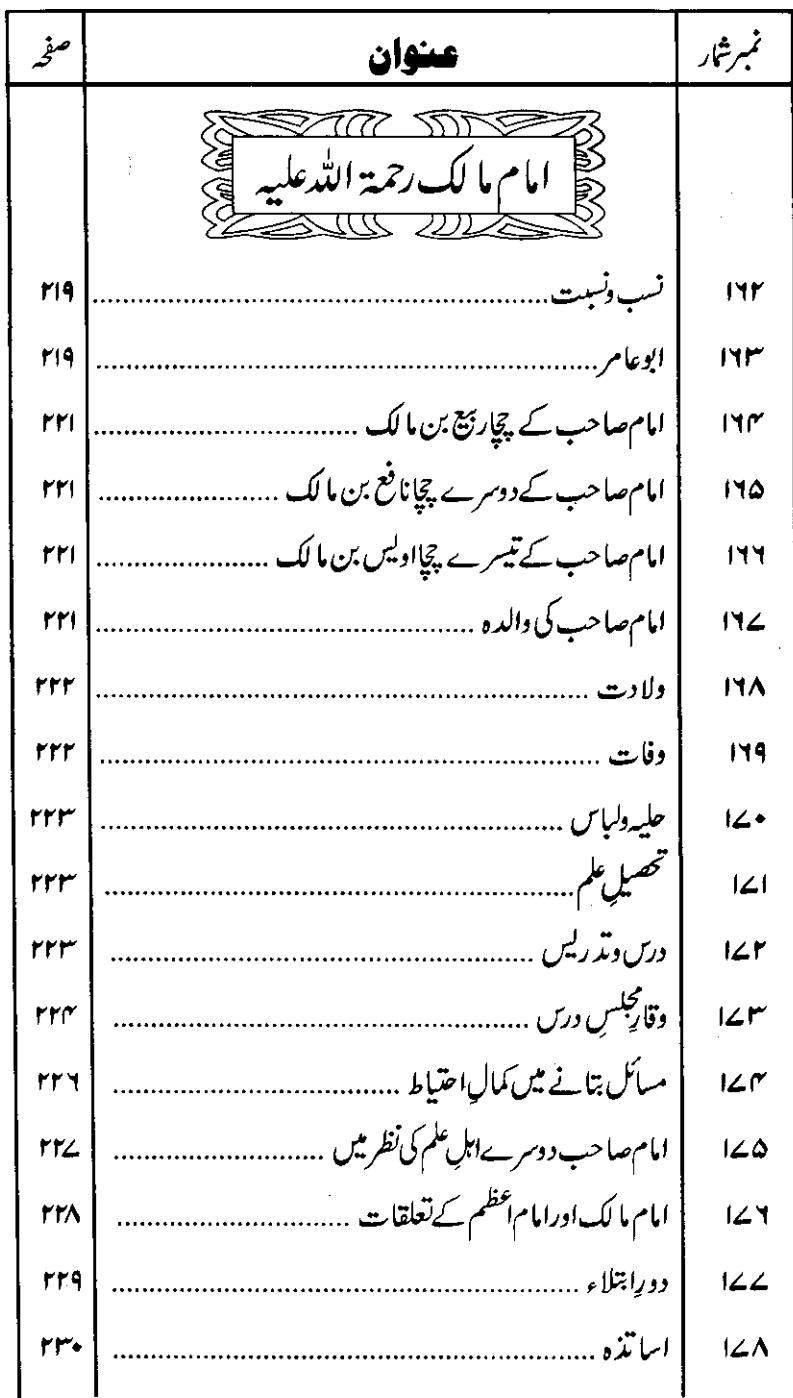 نمبر شمار عنوان صفحہ
امام مالک رحمۃ اللہ علیہ
۱۶۲ نسب ونسبت ................ ۲۱۹
۱۶۳ ابو عامر ................ ۲۱۹
۱۶۴ امام صاحب کے چچا ربیع بن مالک ................ ۲۲۱
۱۶۵ امام صاحب کے دوسرے چچا نافع بن مالک ................ ۲۲۱
۱۶۶ امام صاحب کے تیسرے چچا اویس بن مالک ................ ۲۲۱
۱۶۷ امام صاحب کی والدہ ................ ۲۲۱
۱۶۸ ولادت ................ ۲۲۲
۱۶۹ وفات ................ ۲۲۲
۱۷۰ حلیہ ولباس ................ ۲۲۳
۱۷۱ تحصیلِ علم ................ ۲۲۳
۱۷۲ درس وتدریس ................ ۲۲۳
۱۷۳ وقارِ مجلسِ درس ................ ۲۲۴
۱۷۴ مسائل بتانے میں کمالِ احتیاط ................ ۲۲۶
۱۷۵ امام صاحب دوسرے اہلِ علم کی نظر میں ................ ۲۲۷
۱۷۶ امام مالک اور امام اعظم کے تعلقات ................ ۲۲۸
۱۷۷ دورِ ابتلاء ................ ۲۲۹
۱۷۸ اساتذہ ................ ۲۳۰